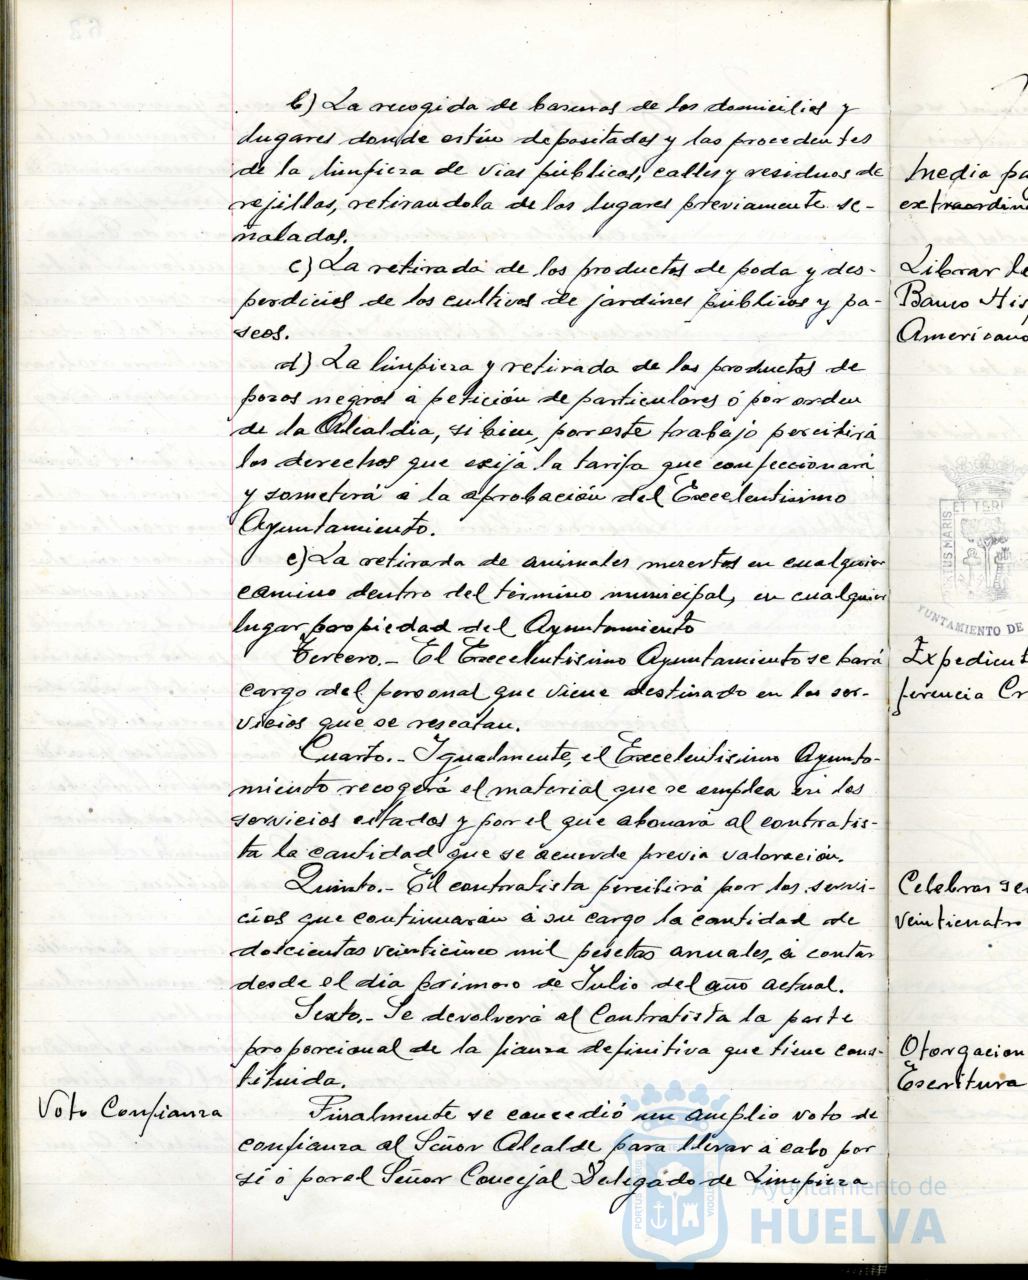 b) La recogida de basuras de los domicilios y
lugares donde estén depositados y las procedentes
de la limpieza de vias públicas, calles y residuos de
rejillas, retirandola de los lugares previamente se-
ñalados.
c) La retirada de los productos de poda y des-
perdicios de los cultivos de jardines públicos y pa-
seos.
d) La limpieza y retirada de los productos de
pozos negros a petición de particulares ó por orden
de la Alcaldia, si bien, por este trabajo percibirá
los derechos que exija la tarifa que confeccionará
y someterá a la aprobación del Excelentisimo
Ayuntamiento.
e) La retirada de animales muertos en cualquier
camino dentro del término municipal, en cualquier
lugar propiedad del Ayuntamiento
Tercero.- El Excelentisimo Ayuntamiento se hará
cargo del personal que viene destinado en los ser-
vicios que se rescatan.
Cuarto.- Igualmente, el Excelentisimo Ayunta-
miento recogerá el material que se emplea en los
servicios citados y por el que abonará al contratis-
ta la cantidad que se acuerde previa valoración.
Quinto.- El contratista percibirá por los servi-
cios que continuarán a su cargo la cantidad de
doscientas veinticinco mil pesetas anuales, a contar
desde el dia primero de Julio del año actual.
Sexto.- Se devolverá al Contratista la parte
proporcional de la fianza definitiva que tiene cons-
tituida.
Voto Confianza
Finalmente se concedió un amplio voto de
confianza al Señor Alcalde para llevar a cabo por
sí ó por el Señor Concejal Delegado de Limpieza
Inedia pa
extraordin
Librar le
Banco His
Americano
PORTUS MARIS ET TERR
YUNTAMIENTO DE
Expedient
ferencia Cr
Celebrar se
veinticuatro
Otorgacion
Escritura
Ayuntamiento de
HUELVA